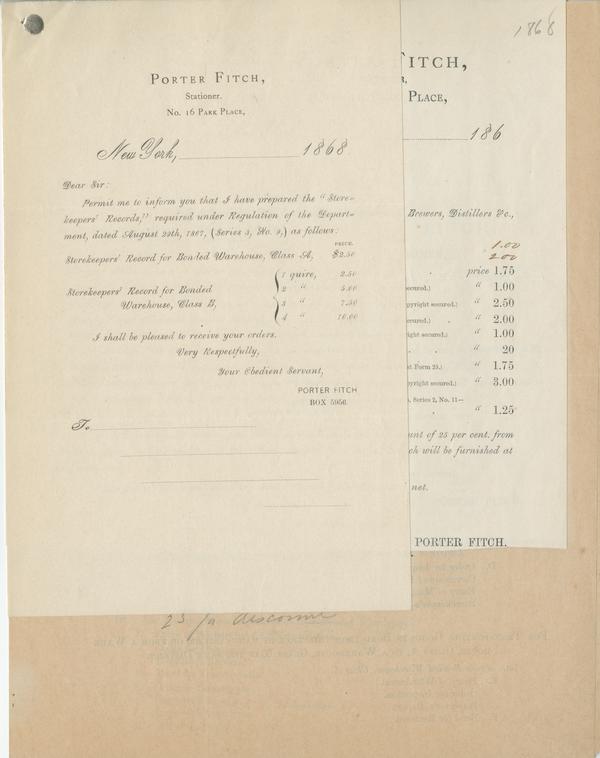 PORTER FITCH,
Stationer.
No. 16 PARK PLACE,
New York, 1868
Dear Sir:
Permit me to inform you that I have prepared the "Store-
keepers' Records," required under Regulation of the Depart-
ment, dated August 29th, 1867, (Series 3, No. 9,) as follows:
PRICE.
Storekeepers' Record for Bonded Warehouse, Class A, $2.50
Storekeepers' Record for Bonded
Warehouse, Class B,
1 quire, 2.50
2 " 5.00
3 " 7.50
4 " 10.00
I shall be pleased to receive your orders.
Very Respectfully,
Your Obedient Servant,
PORTER FITCH
BOX 5956.
To
1868
FITCH,
R,
PLACE,
186
Brewers, Distillers &c.,
1.00
2.00
price 1.75
ecured.) " 1.00
pyright secured.) " 2.50
ecured.) " 2.00
ight secured.) " 1.00
" 20
t Form 25.) " 1.75
yright secured.) " 3.00
, Series 2, No. 11—
" 1.25
unt of 25 per cent. from
ch will be furnished at
net.
PORTER FITCH.